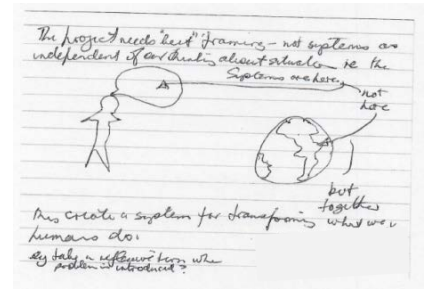 The project needs "best" framing – not systems as
independent of our thinking about situation ie the
Systems are here,
not
here
but
together
this create a system for transforming what we
humans do.
eg take a reflexive turn when
problem is introduced?